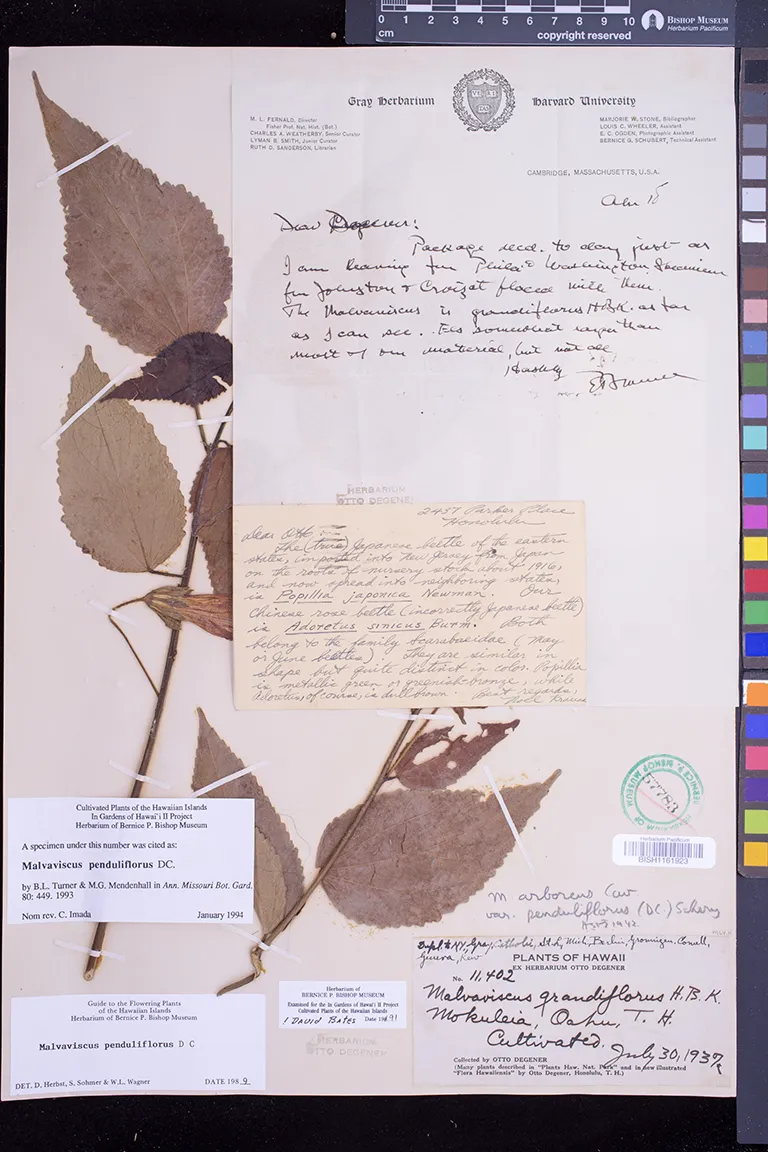 0 1 2 3 4 5 6 7 8 9 10
cm
copyright reserved
BISHOP MUSEUM
Herbarium Pacificum
Gray Herbarium Harvard University
VE RI TAS
M. L. FERNALD, Director
Fisher Prof. Nat. Hist. (Bot.)
CHARLES A. WEATHERBY, Senior Curator
LYMAN B. SMITH, Junior Curator
RUTH D. SANDERSON, Librarian
MARJORIE W. STONE, Bibliographer
LOUIS C. WHEELER, Assistant
E. C. OGDEN, Photographic Assistant
BERNICE G. SCHUBERT, Technical Assistant
CAMBRIDGE, MASSACHUSETTS, U.S.A.
Dear Degener:
Package recd. to day just as
I am leaving for Phila & Washington Specimen
for Johnston & Croizat placed with them.
The Malvaviscus is grandiflorus HBK. as far
as I can see. somewhat larger than
most of our material, but not all
Hastily
HERBARIUM
OTTO DEGENER
2437 Parker Place
Honolulu
Dear Otto
The (true) Japanese beetle of the eastern
states, imported into New Jersey from Japan
on the roots of nursery stock about 1916,
and now spread into neighboring states,
is Popillia japonica Newman. Our
Chinese rose beetle (incorrectly Japanese beetle)
is Adoretus sinicus Burm. Both
belong to the family Scarabaeidae (May
or June beetles). They are similar in
shape but quite distinct in color. Popillia
is metallic green or greenish-bronze, while
Adoretus, of course, is dull brown. Best regards,
Noel Krauss
Cultivated Plants of the Hawaiian Islands
In Gardens of Hawai'i II Project
Herbarium of Bernice P. Bishop Museum
A specimen under this number was cited as:
Malvaviscus penduliflorus DC.
by B.L. Turner & M.G. Mendenhall in Ann. Missouri Bot. Gard.
80: 449. 1993
Nom rev. C. Imada January 1994
Guide to the Flowering Plants
of the Hawaiian Islands
Herbarium of Bernice P. Bishop Museum
Malvaviscus penduliflorus D C
DET. D. Herbst, S. Sohmer & W.L. Wagner DATE 198 9
Herbarium of
BERNICE P. BISHOP MUSEUM
Examined for the In Gardens of Hawai'i II Project
Cultivated Plants of the Hawaiian Islands
! DAVID BATES Date 1991
HERBARIUM
OTTO DEGENER
BERNICE P. BISHOP MUSEUM
57783
HERBARIUM OF
Herbarium Pacificum
BISH1161923
M arboreus Cav.
var. penduliflorus (DC.) Schery
1942
Dupl. to NY, Gray, Catholic, St. L, Mich, Berlin, Groningen, Cornell,
Geneva, Kew
PLANTS OF HAWAII
EX HERBARIUM OTTO DEGENER
No. 11,402
Malvaviscus grandiflorus H.B.K.
Mokuleia, Oahu, T. H.
Cultivated.
July 30, 1937
Collected by OTTO DEGENER
(Many plants described in "Plants Haw. Nat. Park" and in new illustrated
"Flora Hawaiiensis" by Otto Degener, Honolulu, T. H.)